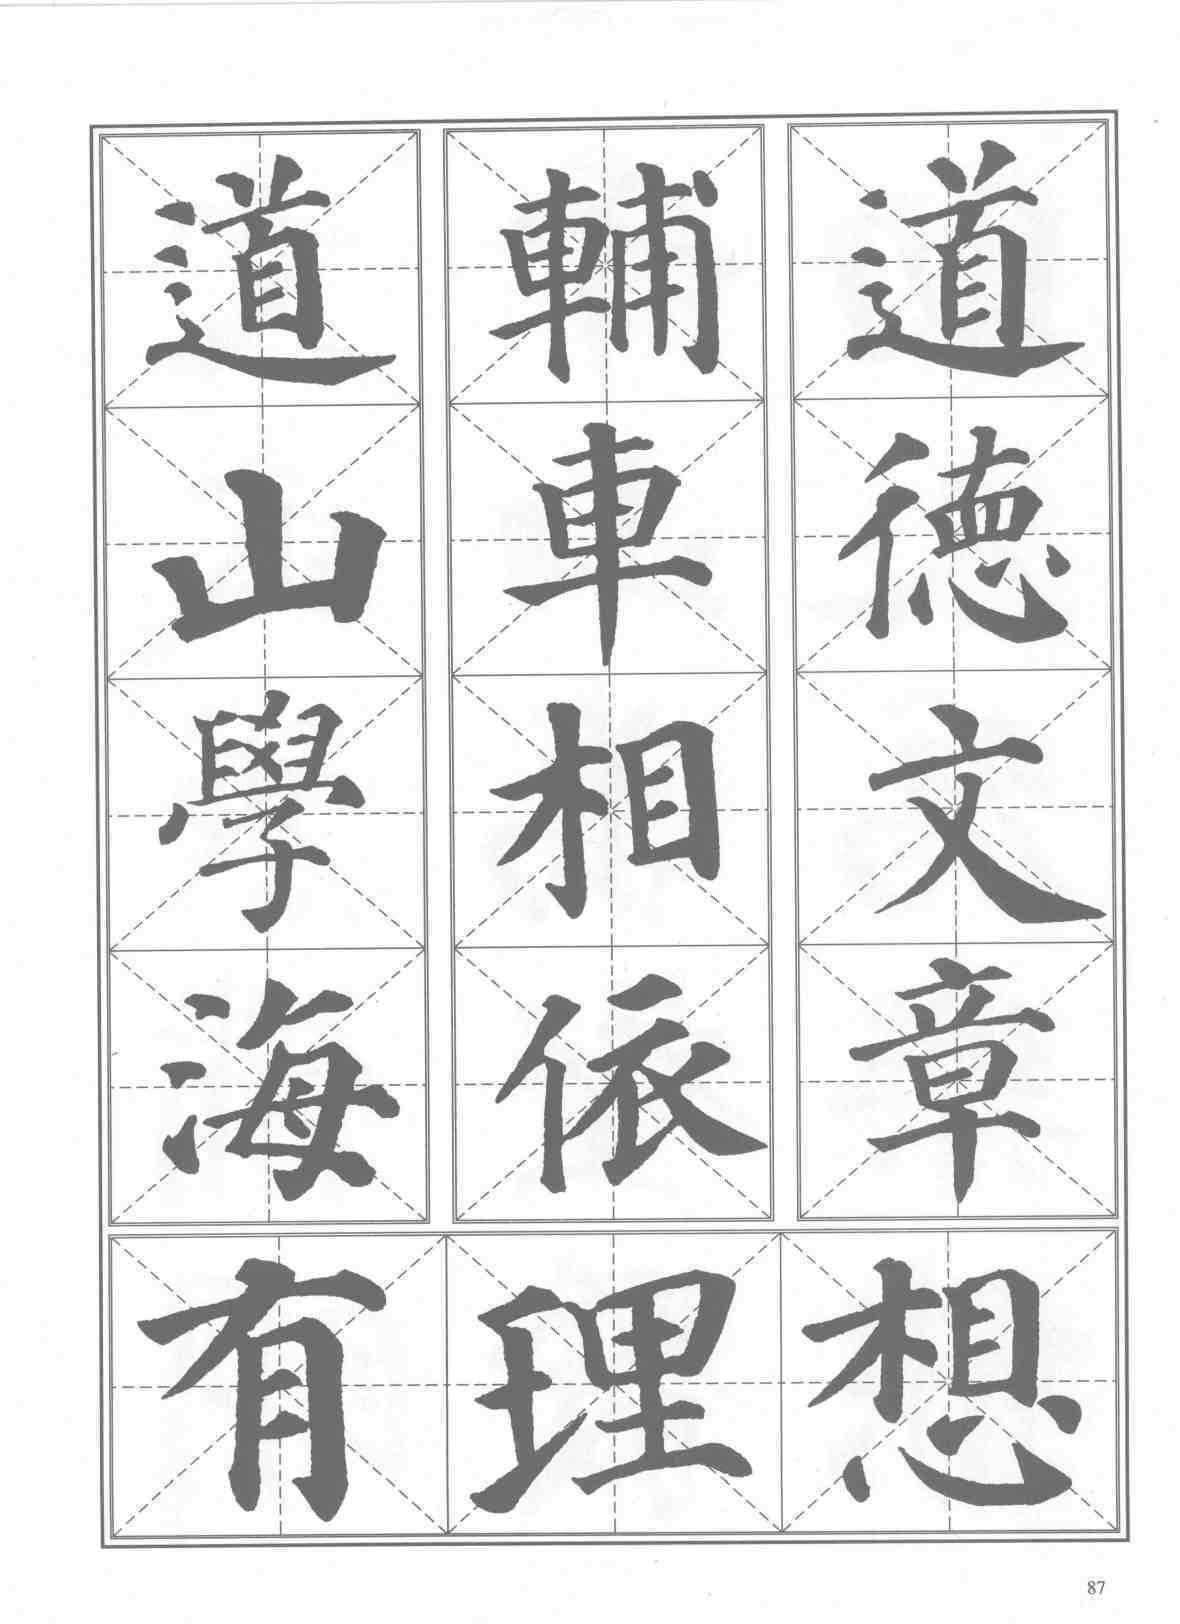 道德文章
輔車相依
道山學海
有理想
87